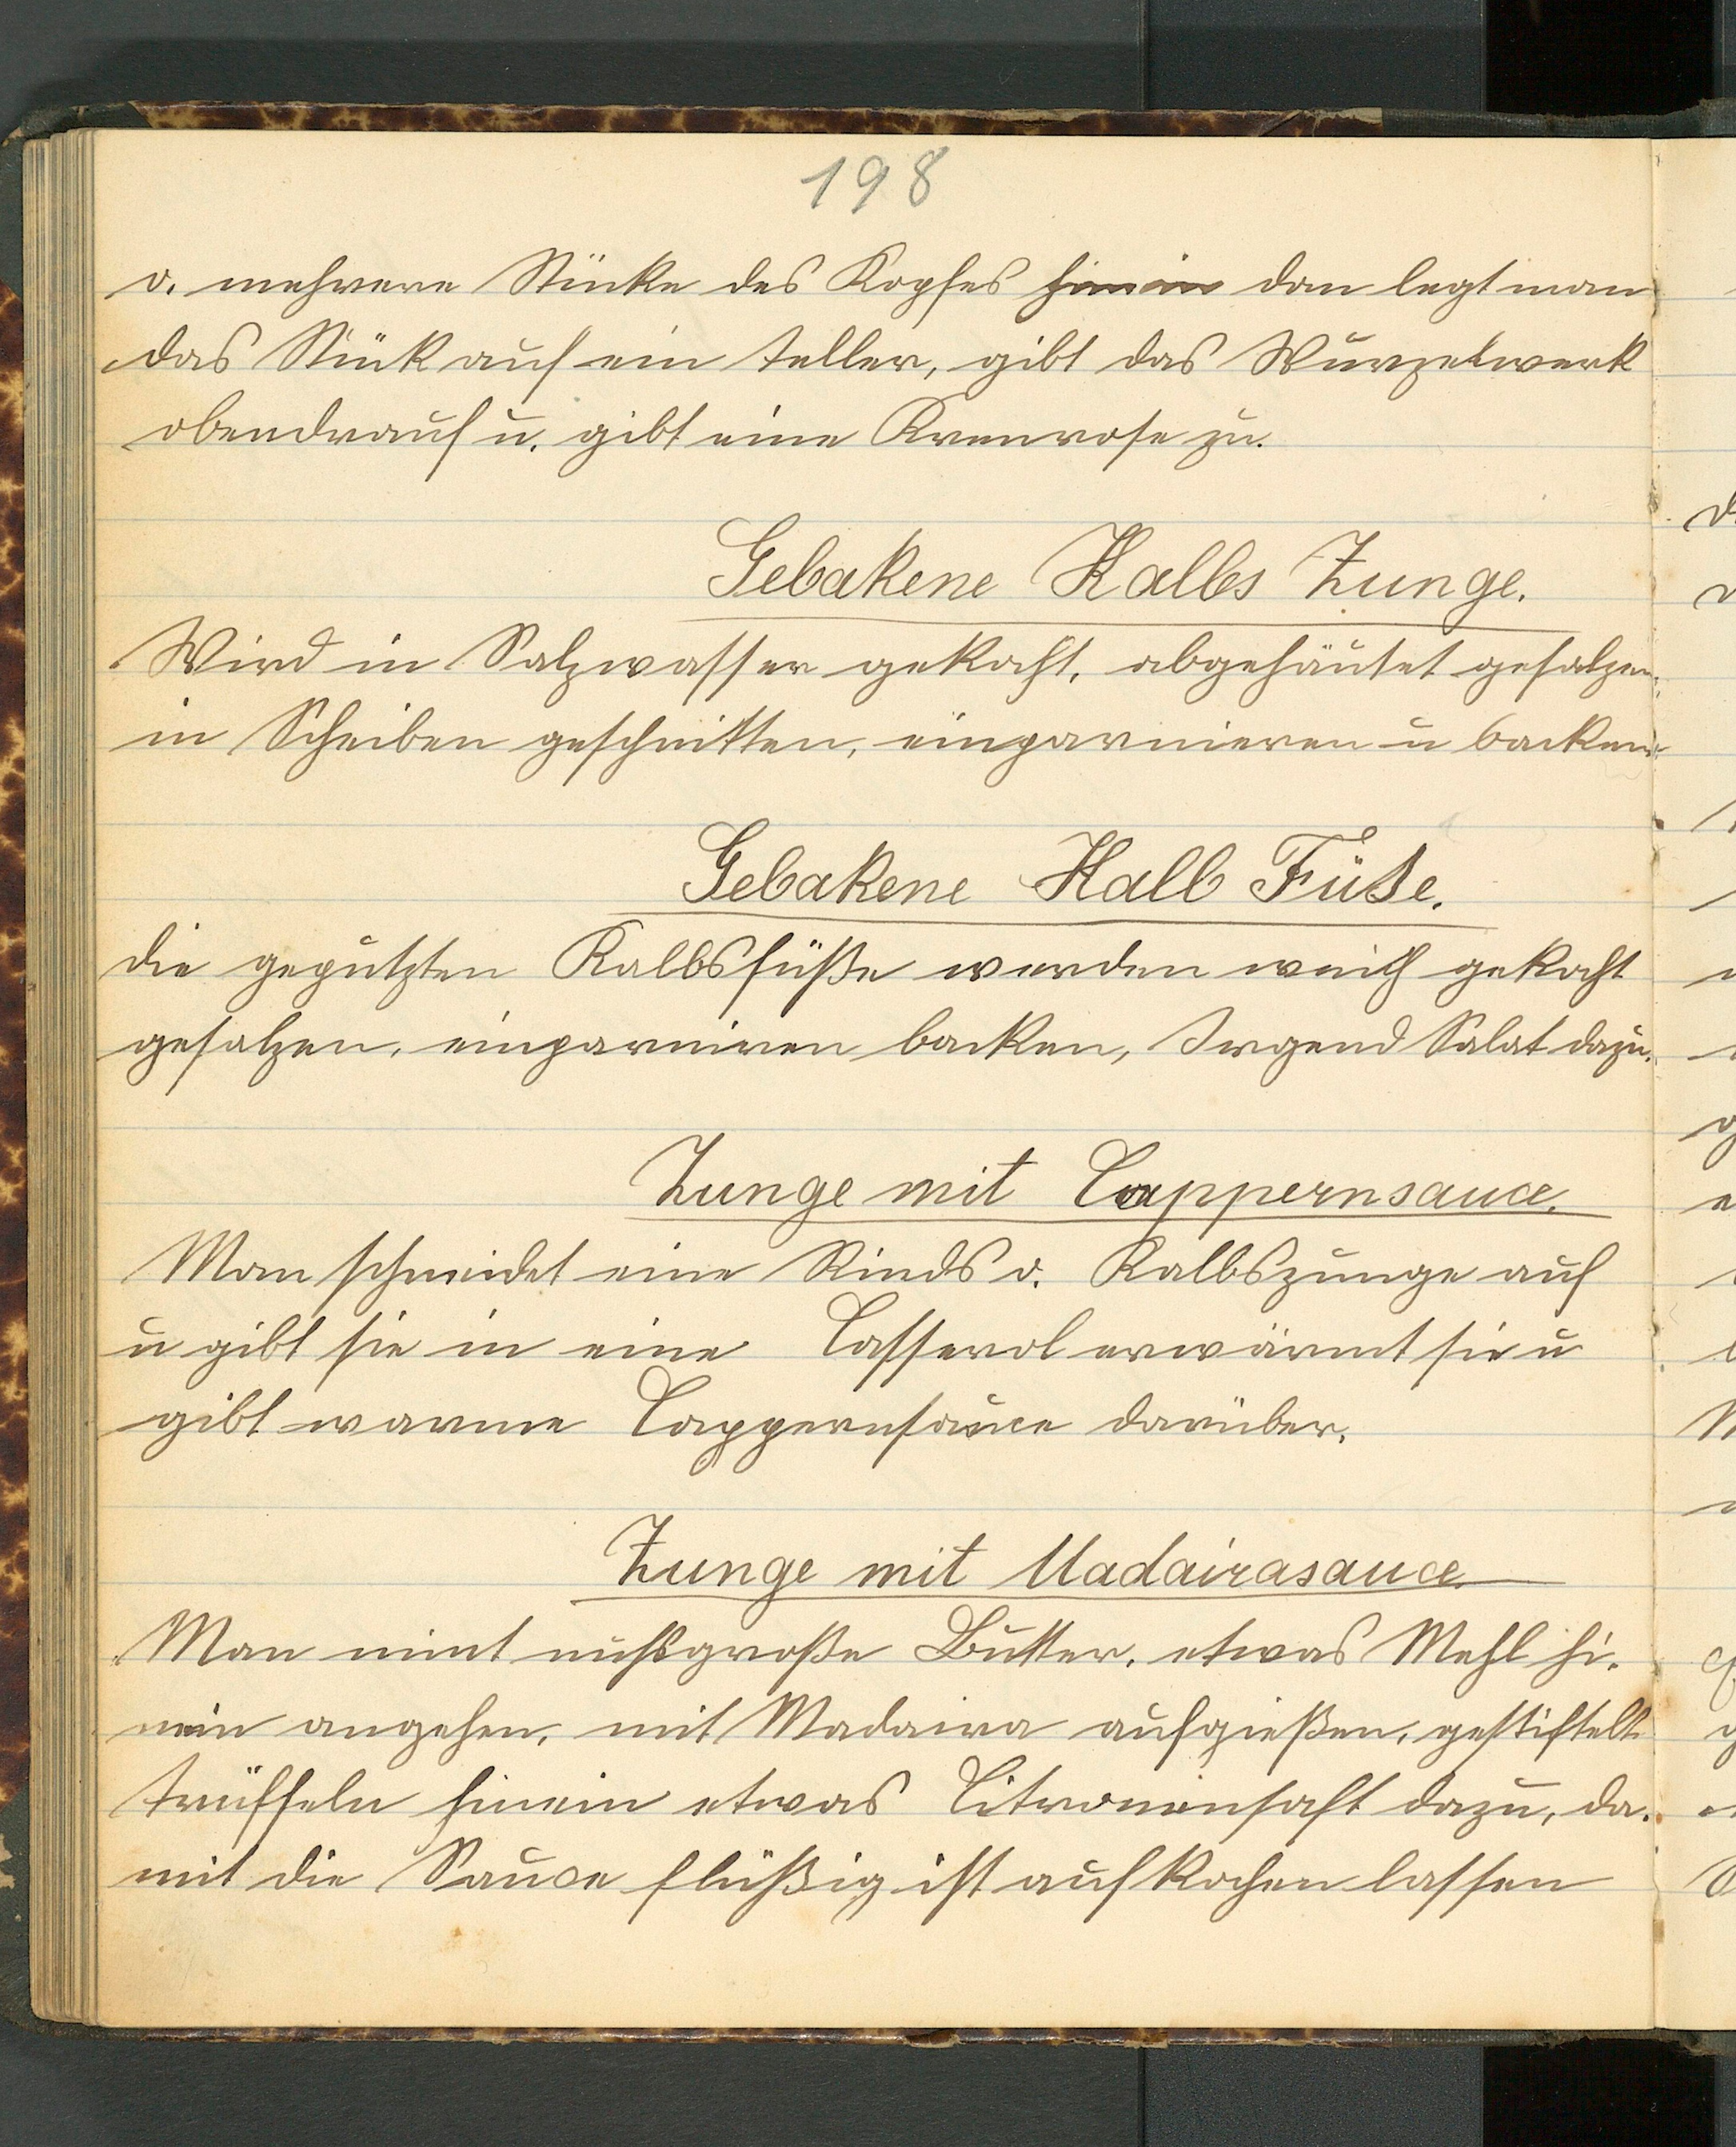 198
o. mehrere Stücke des Kopfes hinein dan legt man
das Stück auf ein teller, gibt das Wurzelwerk
obendrauf u. gibt eine Krenrose zu.
Gebakene Kalbs Zunge.
Wird in Salzwasser gekocht, abgehäutet gesalzen,
in Scheiben geschnitten, einparnieren u backen.
Gebakene Kalb Füße.
die geputzten Kalbsfüße werden weich gekocht
gesalzen, einparniren backen, Irgend Salat dazu.
Zunge mit Cappernsauce.
Man schneidet eine Rinds o. Kalbszunge auf
u gibt sie in eine Casserol erwärmt sie u
gibt warme Cappernsauce darüber.
Zunge mit Madairasauce
Man nimt nußgroße Butter, etwas Mehl hi-
nein angehen, mit Madaira aufgießen, gestiftelt
trüffeln hinein etwas Citronensaft dazu, da-
mit die Sauce flüßig ist aufkochen lassen